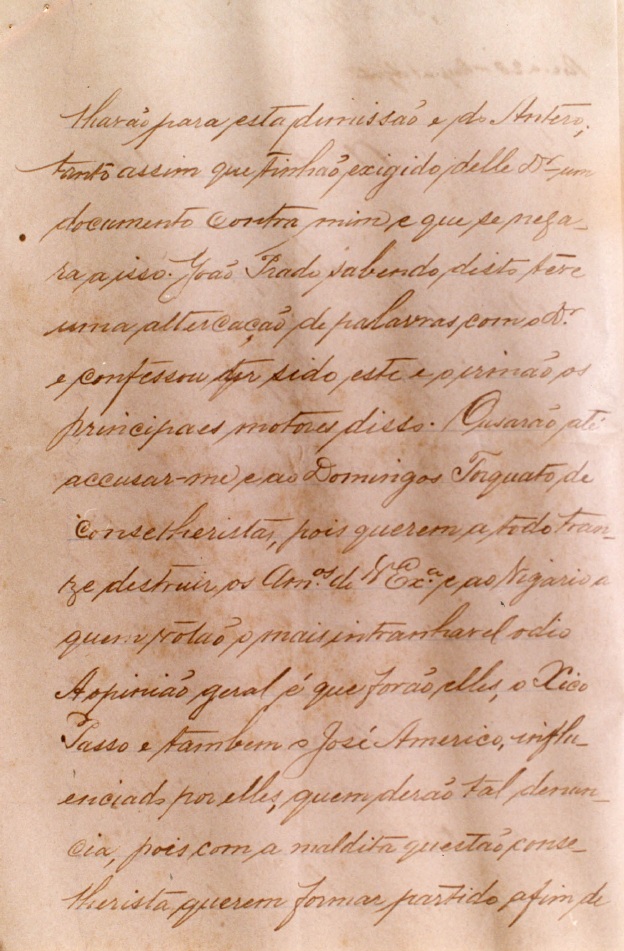 lharão para esta dimissão e do Antero;
tanto assim que tinhão exigido delle Dr. um
documento contra mim e que se nega-
ra a isso. João Prado sabendo disto teve
uma altercação de palavras com o Dr.
e confessou ter sido este e o irmão os
principaes motores disso. Ousarão até
accusar-me e ao Domingos Torquato de
Conselheristas, pois querem a todo tran-
ze destruir os Am.os de V Ex.a e ao Vigario a
quem votão o mais intranhavel odio
A opinião geral é que forão elles, o Xico
Passo e tambem o José Americo, influ-
enciado por elles, quem derão tal denun-
cia, pois com a maldita questão conse-
lherista querem formar partido afim de